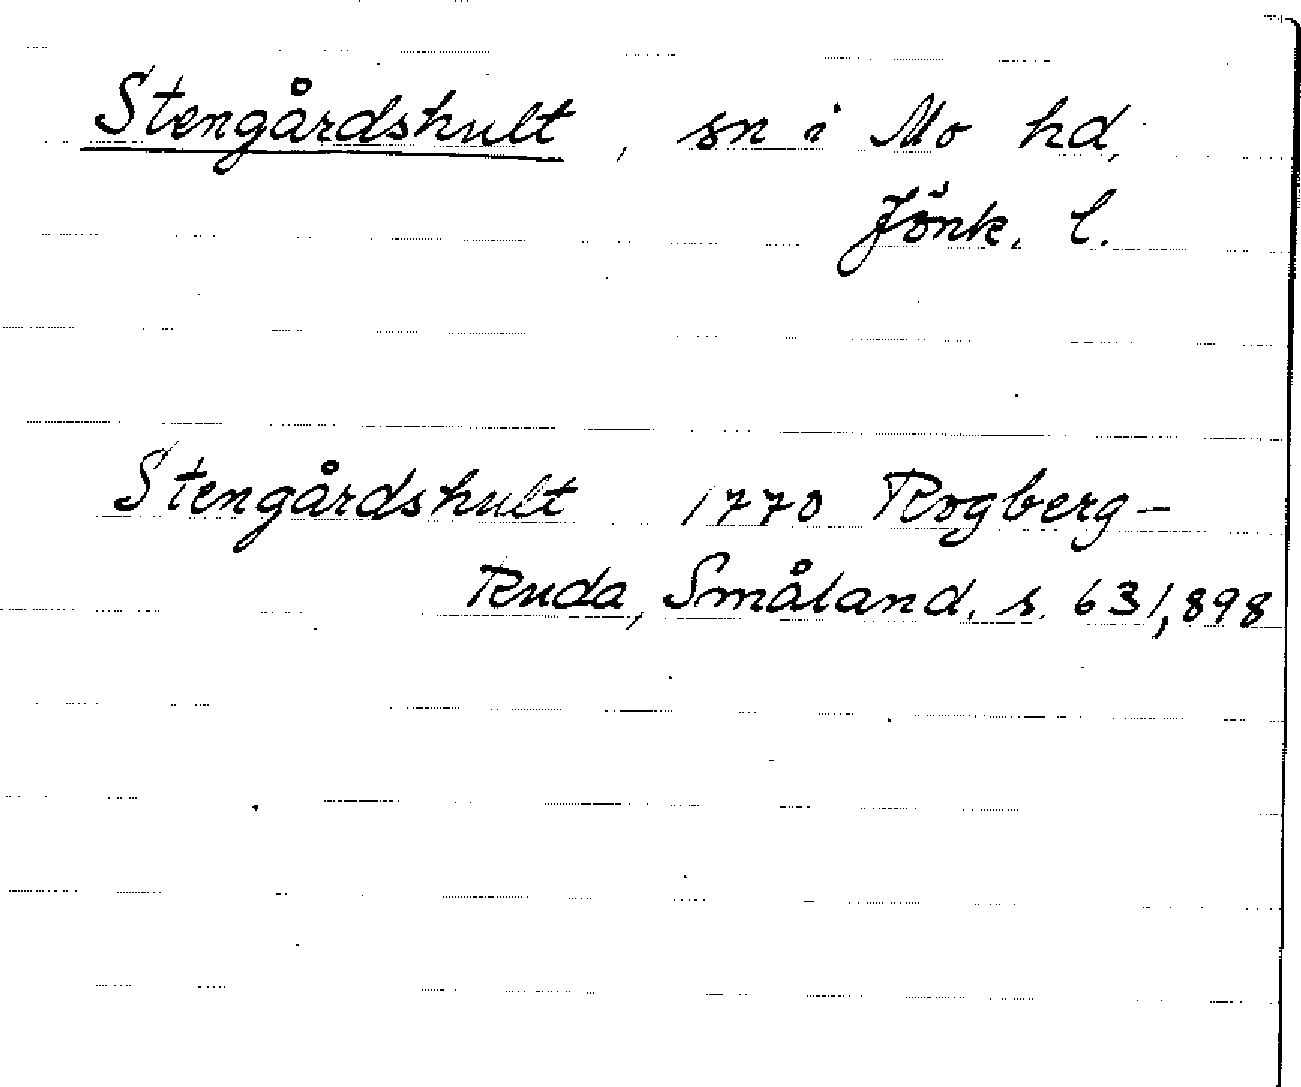 Stengårdshult, sn i Mo hd,
Jönk. l.
Stengårdshult 1770 Rogberg-
Ruda, Småland, s. 631,898